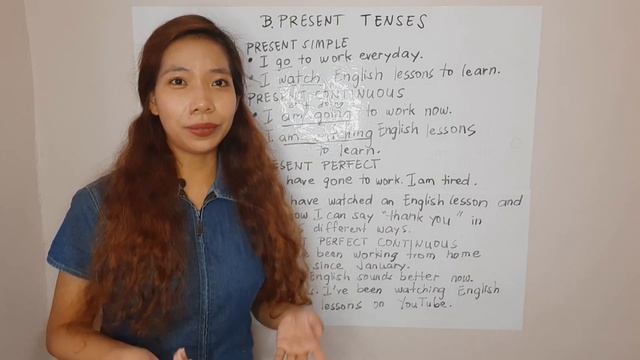 B. PRESENT TENSES
PRESENT SIMPLE
• I go to work everyday.
I watch English lessons to learn.
PRESENT CONTINUOUS
• I am going to work now.
I am watching English lessons
to learn.
PRESENT PERFECT
have gone to work. I am tired.
have watched an English lesson and
now I can say "thank you" in
different ways.
PERFECT CONTINUOUS
been working from home
since January.
English sounds better now.
I've been watching English
lessons on YouTube.